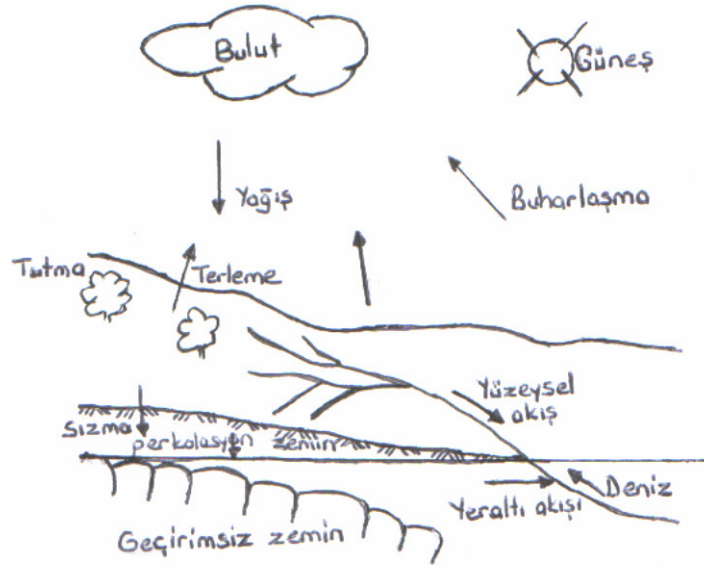 Bulut
Güneş
Yağış
Buharlaşma
Tutma
Terleme
Yüzeysel
akış
Sızma
perkolasyon zemin
Deniz
Yeraltı akışı
Geçirimsiz zemin